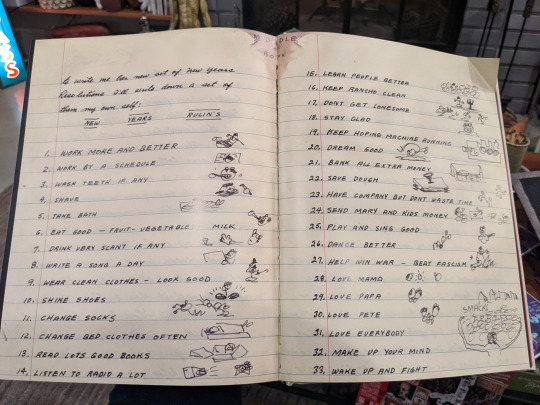 to write me her new set of New Years
Resolutions I'll write down a set of
them my own self:
NEW YEARS RULIN'S
1. WORK MORE AND BETTER
2. WORK BY A SCHEDULE
3. WASH TEETH IF ANY
4. SHAVE
5. TAKE BATH
6. EAT GOOD — FRUIT — VEGETABLE MILK
7. DRINK VERY SCANT IF ANY
8. WRITE A SONG A DAY
9. WEAR CLEAN CLOTHES — LOOK GOOD
10. SHINE SHOES
11. CHANGE SOCKS
12. CHANGE BED CLOTHES OFTEN
13. READ LOTS GOOD BOOKS
14. LISTEN TO RADIO A LOT
15. LEARN PEOPLE BETTER
16. KEEP RANCHO CLEAN
17. DONT GET LONESOME
18. STAY GLAD
19. KEEP HOPING MACHINE RUNNING
20. DREAM GOOD
21. BANK ALL EXTRA MONEY
22. SAVE DOUGH
23. HAVE COMPANY BUT DONT WASTE TIME
24. SEND MARY AND KIDS MONEY
25. PLAY AND SING GOOD
26. DANCE BETTER
27. HELP WIN WAR — BEAT FASCISM
28. LOVE MAMA
29. LOVE PAPA
30. LOVE PETE
SMACK!
31. LOVE EVERYBODY
32. MAKE UP YOUR MIND
33. WAKE UP AND FIGHT